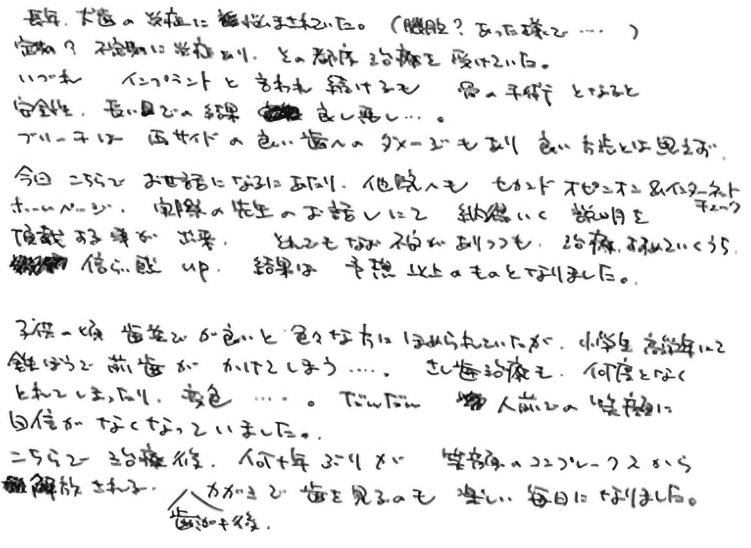 長年、犬歯の炎症に悩まされていた。(膿胞?あった様で……)
定期?不定期に炎症あり、その都度治療を受けていた。
いづれ インプラントと言われ続けるも 骨の手術となると
安全性、長い目での結果 良し悪し…。
ブリーチは両サイドの良い歯へのダメージもあり良い方法とは思えず
今回こちらでお世話になるにあたり、他院へもセカンドオピニオン&インターネットチェック
ホームページ、実際の先生のお話しにて 納得いく説明を
頂戴する事が出来、とれでもなお不安がありつつも、治療すすんでいくうち
信らい感up、結果は予想以上のものとなりました。
子供の頃 歯並びが良いと色々な方にほめられていたが、小学生高学年にて
鉄ぼうで前歯がかけてしまう……。さし歯治療も、何度となく
とれてしまったり、変色……。だんだん 人前での笑顔に
自信がなくなっていました。
こちらで治療後、何十年ぶりかで 笑顔のコンプレックスから
解放される。かがみで歯を見るのも楽しい毎日になりました。
歯みがき後、